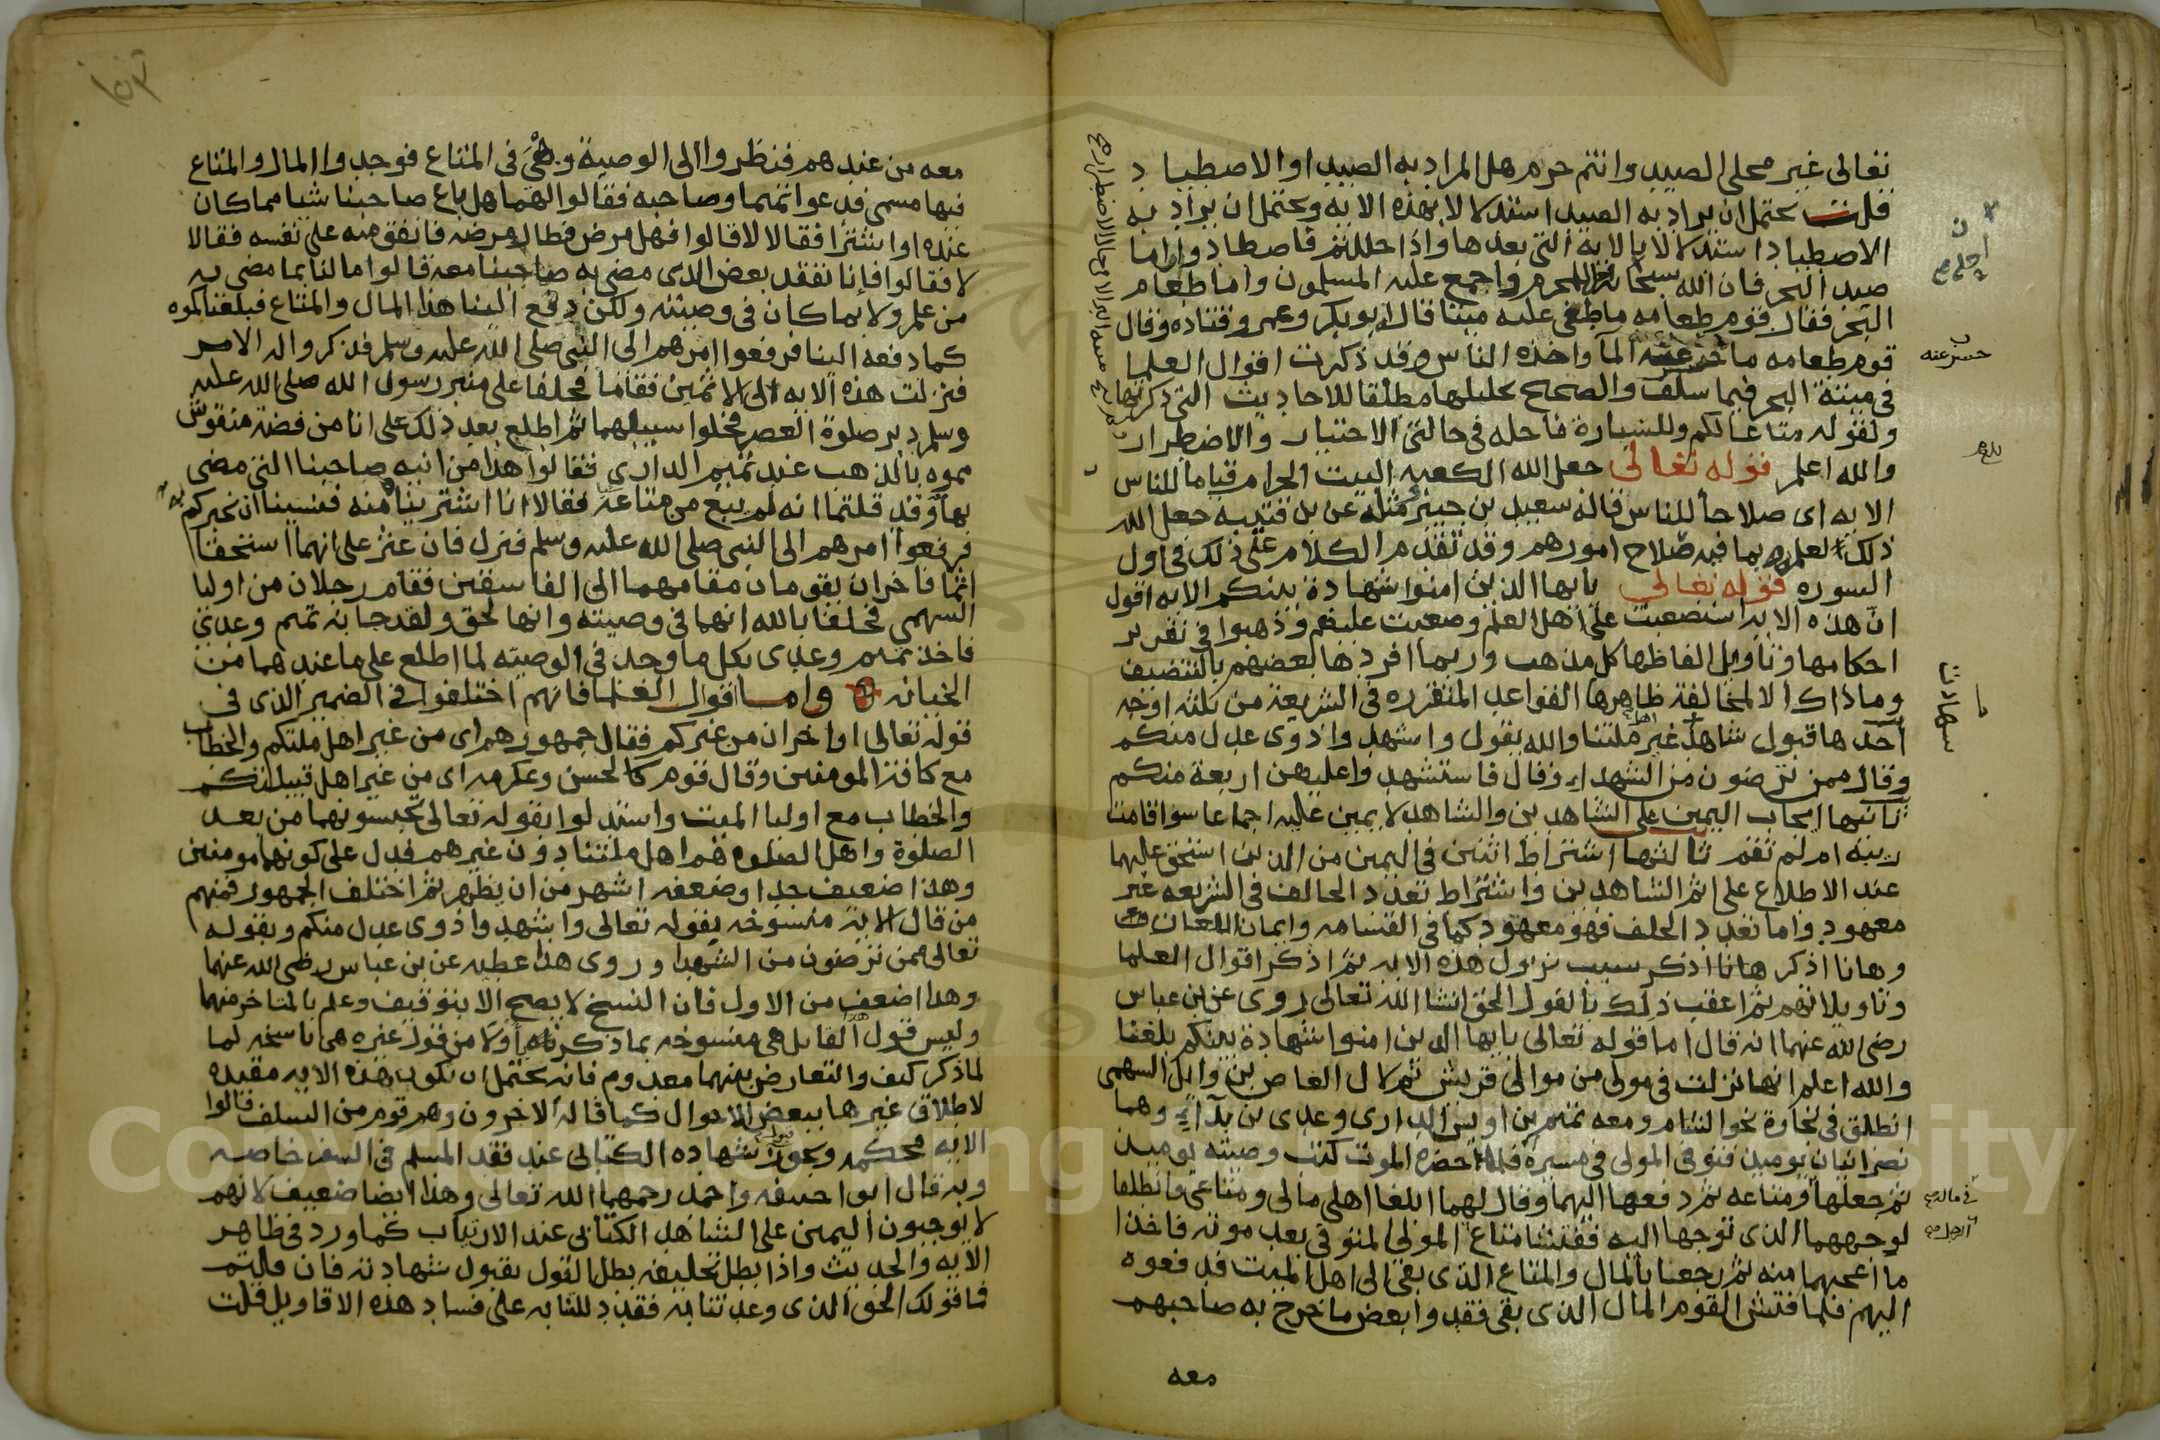 تعالى غير محلي الصيد وانتم حرم هل المراد به الصيد او الاصطياد
قلت يحتمل ان يراد به الصيد استدلالا بهذه الايه ويحتمل ان يراد به
الاصطياد استدلالا بالاية التي بعدها واذا حللتم فاصطادوا واما
صيد البحر فان الله سبحانه للمحرم واجمع عليه المسلمون واما طعام
البحر فقال قوم طعامه ماطفى عليه ميتا قاله ابو بكر وعمر وقتاده وقال
قوم طعامه ما عنه الما واخذه الناس وقد ذكرت اقوال العلما
في ميتة البحر فيما سلف والصحيح تحليلها مطلقا للاحاديث التي ذكرتها
ولقوله متاعا لكم وللسيارة فاحله في حالتي الاختيار والاضطرار
والله اعلم قوله تعالى جعل الله الكعبه البيت الحرام قياما للناس
الايه اى صلاحا للناس قاله سعيد بن جبير مثله عن بن قتيبه جعل الله
ذلك لعلمه بما فيه صلاح امورهم وقد تقدم الكلام على ذلك في اول
السوره قوله تعالى يايها الذين امنوا شهادة بينكم الايه اقول
ان هذه الايه استصعبت على اهل العلم وصعبت عليهم وذهبوا في تقرير
احكامها وتاويل الفاظها كل مذهب وربما افردها بعضهم بالتصنيف
وما ذاك الا لمخالفة ظاهرها القواعد المتقرره في الشريعة من ثلثه اوجه
احدها قبول شاهد غير ملتنا والله يقول واشهدوا ذوى عدل منكم
وقال ممن ترضون من الشهداء وقال فاستشهدوا عليهن اربعة منكم
ثانيها ايجاب اليمين على الشاهدين والشاهد لا يمين عليه اجماعا سوا قامت
ريبه ام لم تقم ثالثها اشتراط اثنين في اليمين من الذين استحق عليهما
عند الاطلاع على اثم الشاهدين واشتراط تعدد الحالف في الشريعه غير
معهود واما تعدد الحلف فهو معهود كما في القسامه وايمان اللعان
وهانا اذكر سبب نزول هذه الايه ثم اذكر اقوال العلما
وتاويلاتهم ثم اعقب ذلك بالقول الحق انشا الله تعالى روى عن بن عباس
رضى الله عنهما انه قال اما قوله تعالى يايها الذين امنوا شهادة بينكم بلغنا
والله اعلم انها نزلت في مولى من موالى قريش ثم لال العاص بن وايل السهمي
انطلق في تجارة نحو الشام ومعه تميم بن اوس الدارى وعدى بن بداء وهما
نصرانيان يوميذ فتوفى المولى في مسيره فلما حضره الموت كتب وصيته بوميد
ثم جعلها ومتاعه ثم دفعها اليهما وقال لهما ابلغا اهلى مالى ومتاعى فانطلقا
لوجههما الذى توجها اليه ففتشا متاع المولى المتوفى بعد موته فاخذا
ما اعجبهما منه ثم رجعا بالمال والمتاع الذى بقى الى اهل الميت فدفعوه
اليهم فلما فتش القوم المال الذى بقى فقدوا بعض ما خرج به صاحبهم
معه
معه من عندهم فنظروا الى الوصية وهى في المتاع فوجدوا المال والمتاع
فيها مسمى فدعوا تميما وصاحبه فقالوا لهما هل باع صاحبنا شيا مما كان
عنده او اشترا فقالا لا قالوا فهل مرض فطال مرضه فانفق منه على نفسه فقالا
لا فقالوا فانا نفقد بعض الذى مضى به صاحبنا معه قالوا ما لنا بما مضى به
من علم ولا بما كان في وصيته ولكن دفع الينا هذا المال والمتاع فبلغناكموه
كما دفعه الينا فرفعوا امرهم الى النبي صلى الله عليه وسلم فذكروا له الامر
فنزلت هذه الايه الى الاثمين فقاما فحلفا على منبر رسول الله صلى الله عليه
وسلم دبر صلوة العصر فخلوا سبيلهما ثم اطلع بعد ذلك على انا من فضة منقوش
مموه بالذهب عند تميم الدارى فقالوا هذا من انيه صاحبنا التي مضى
بها وقد قلتما انه لم يبع من متاعه فقالا انا اشتريناه منه فنسينا ان نخبركم به
فرفعوا امرهم الى النبي صلى الله عليه وسلم فنزل فان عثر على انهما استحقا
اثما فاخران يقومان مقامهما الى الفاسقين فقام رجلان من اوليا
السهمي فحلفا بالله انهما في وصيته وانها لحق ولقد خانه تميم وعدي
فاخذ تميم وعدى بكل ما وجد في الوصيه لما اطلع على ما عندهما من
الخيانه واما اقوال العلما فانهم اختلفوا في الضمير الذى في
قوله تعالى او اخران من غيركم فقال جمهورهم اى من غير اهل ملتكم والخطاب
مع كافة المومنين وقال قوم كالحسن وعكرمه اى من غير اهل قبيلتكم
والخطاب مع اوليا الميت واستدلوا بقوله تعالى تحبسونهما من بعد
الصلوة واهل الصلوه هم اهل ملتنا دون غيرهم فدل على كونهما مومنين
وهذا ضعيف جدا وضعفه اشهر من ان يظهر ثم اختلف الجمهور فمنهم
من قال الاية منسوخه بقوله تعالى واشهدوا ذوى عدل منكم وبقوله
تعالى ممن ترضون من الشهدا وروى هذا عطيه عن بن عباس رضى الله عنهما
وهذا اضعف من الاول فان النسخ لا يصح الا بتوقيف وعلم بالمتاخر منهما
وليس قول القايل هي منسوخه بما ذكرناه باولا من قول غيره هى ناسخه لما
لما ذكر كيف والتعارض بينهما معدوم فانه يحتمل ان تكون هذه الايه مقيده
لاطلاق غيرها ببعض الاحوال كما قاله الاخرون وهم قوم من السلف قالوا
الايه محكمه ويجوز شهاده الكتابى عند فقد المسلم في السفر خاصه
وبه قال ابو احنيفه واحمد رحمهما الله تعالى وهذا ايضا ضعيف لانهم
لا يوجبون اليمين على الشاهد الكتابى عند الارتياب كما ورد في ظاهر
الايه والحديث واذا بطل تحليفه بطل القول بقبول شهادته فان قلتم
فما قولك الحق الذى وعدتنا به فقد دللتنا به على فساد هذه الاقاويل قلت